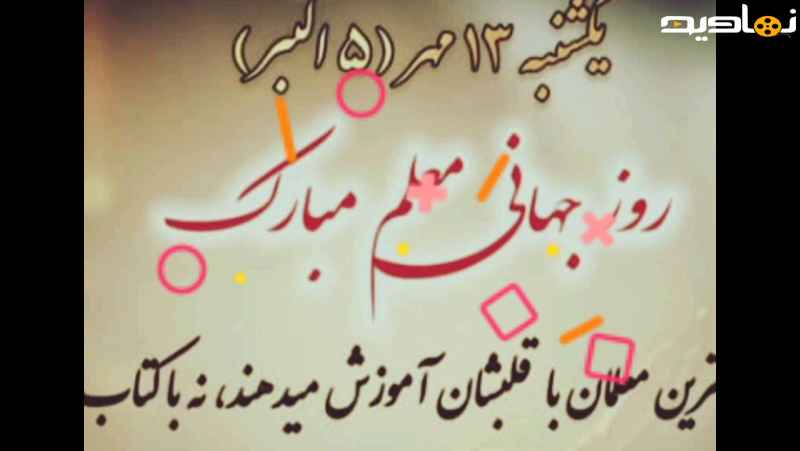 نماویدیو
یکشنبه ۱۳ مهر (۵ اکتبر)
روز جهانی معلم مبارک
معلمان با قلبشان آموزش میدهند، نه با کتاب